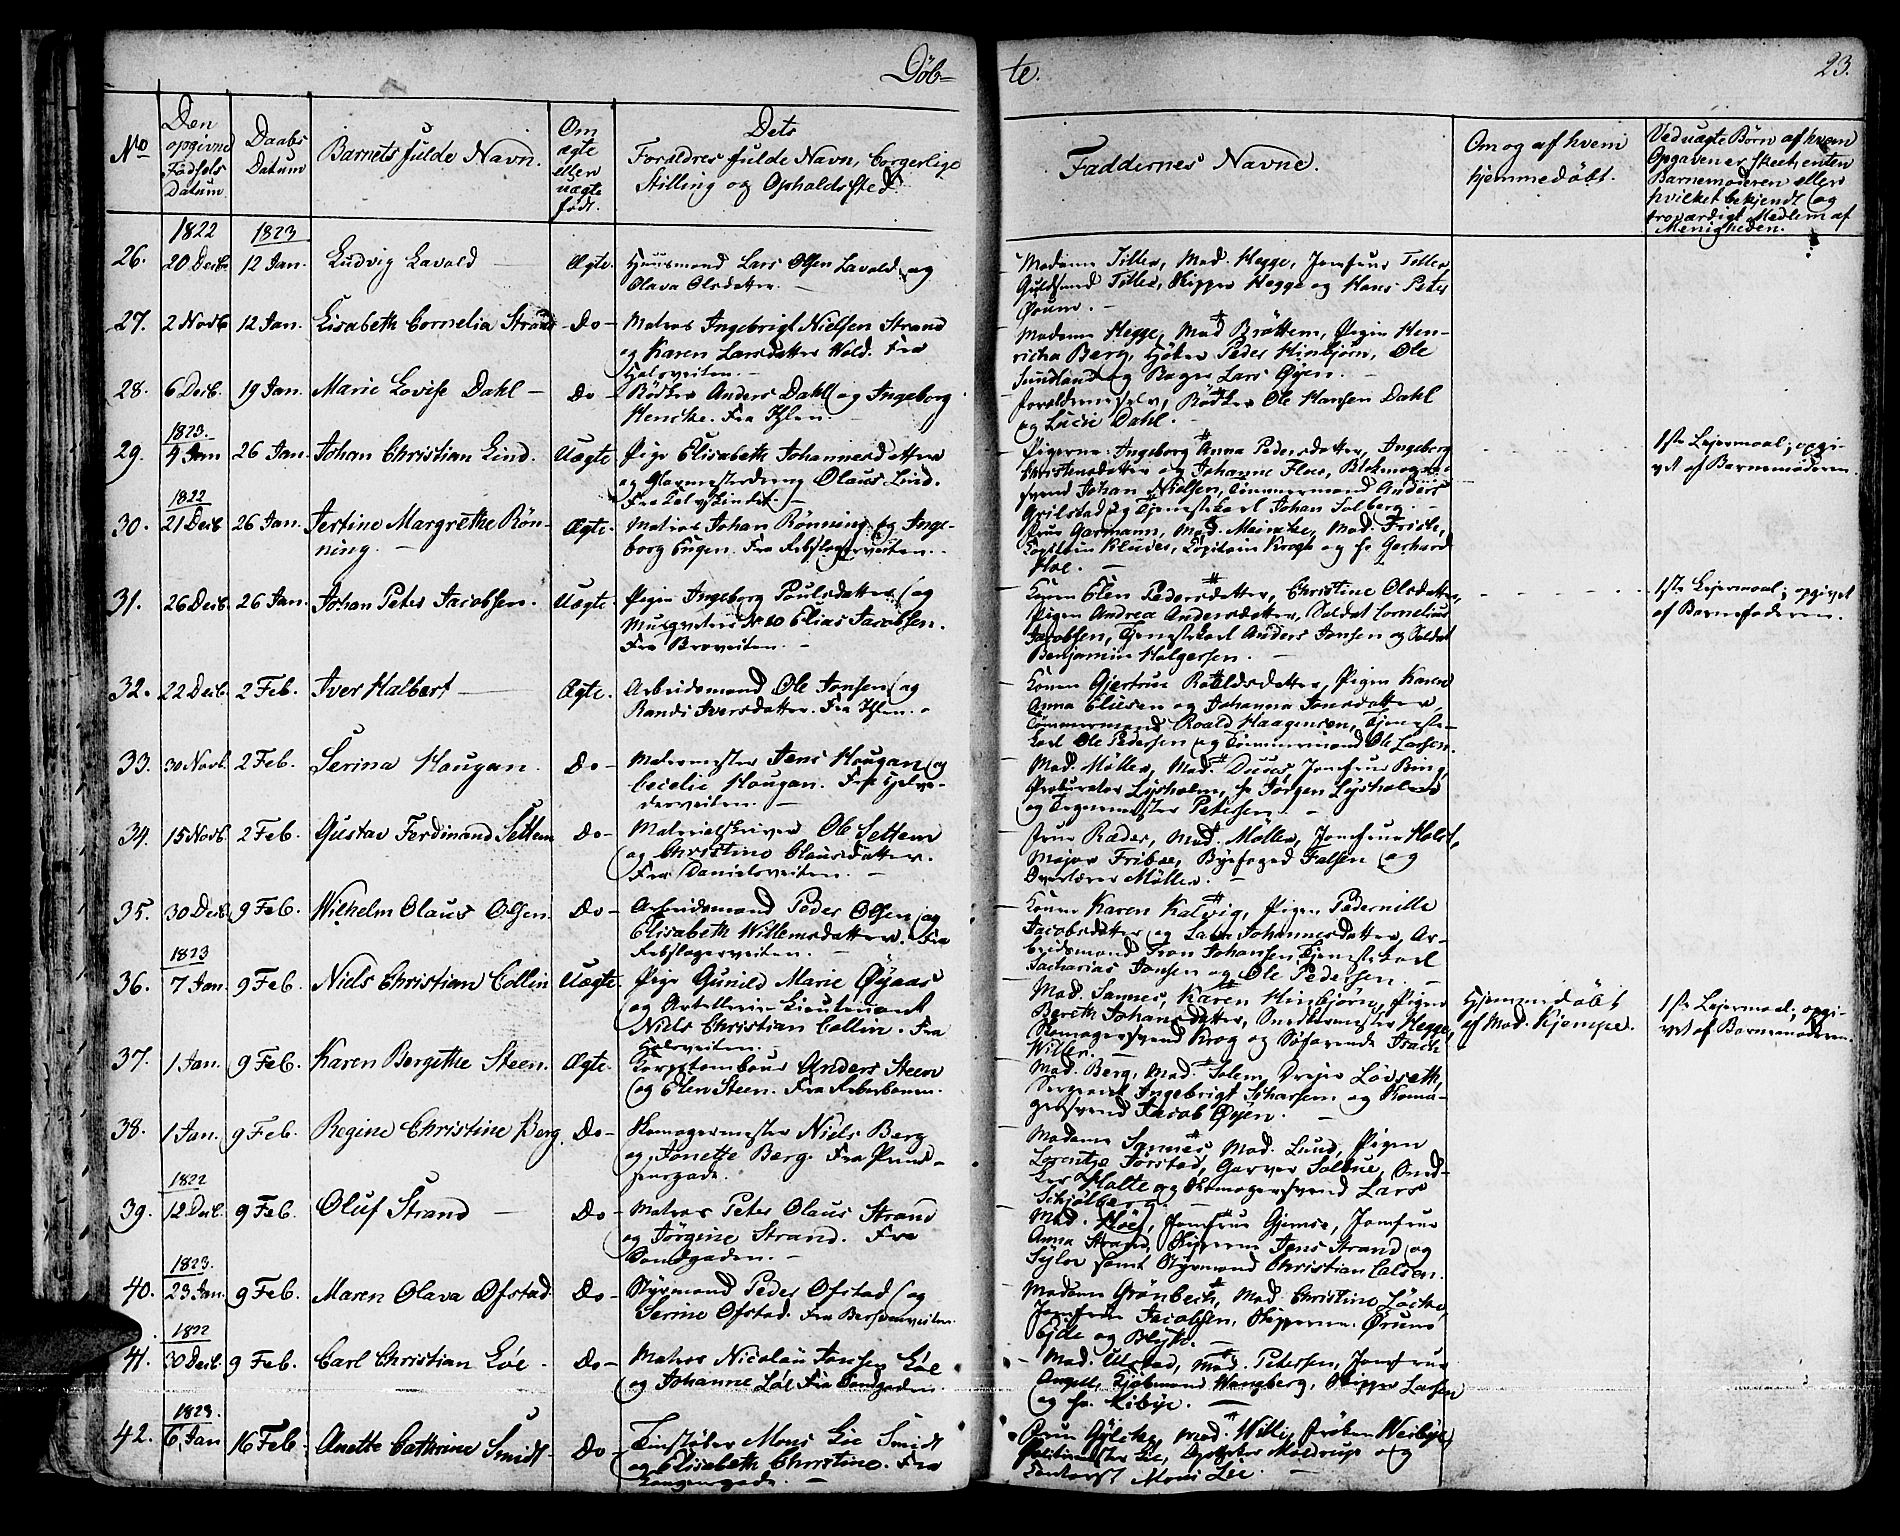 Døb=
te.
23.
No
Den opgivne Fødsels Datum
Daabs Datum
Barnets fulde Navn.
Om ægte eller uægte født.
Dets Forældres fulde Navn, borgerlige Stilling og Opholdssted.
Faddernes Navne.
Om og af hvem hjemmedøbt.
Ved uægte Børn af hvem Opgaven er skeet, enten Barnemoderen eller hvilket bekjendt og troværdigt Medlem af Menigheden.
1822
1823
26. 20 Decb. 12 Jan. Ludvig Lavold — Ægte. Huusmand Lars Olsen Lavold og
Olava Olsdatter. —
Madame Tiller, Mad. Hegge, Jomfrue Tiller,
Guldsmed Tiller, Skipper Hegge og Hans Peter
27. 2 Novb 12 Jan. Elisabeth Cornelia Strand Do— Matros Ingebrigt Nielsen Strand
og Karen Larsdatter Wold. Fra
Madame Hegge, Mad. Brøttem, Pigen Hen-
richa Berg, Peder Hinbjørn, Ole
Sundland og Lars Øyen.
28. 6 Decb. 19 Jan. Marie Lovise Dahl — Do— Bødker Anders Dahl og Ingeborg
Hencke. Fra Ihlen. —
Forældrene selv, Bødker Ole Hansen Dahl
og Lucie Dahl.
1823.
29. 4 Jan 26 Jan. Johan Christian Lind. Uægte Pige Elisabeth Johannesdatter
og Glarmesterdreng Olaus Lind.
Pigerne Ingeborg Anna Pedersdatter, Ingeborg
Christensdatter og Johanne Floer,
svend Johan Nielsen, Tømmermand Anders
Grilstad og Tjenestekarl Johan Solberg.
1ste Lejermaal; opgi-
vet af Barnemoderen
1822
30. 21 Decb 26 Jan. Jertine Margrethe Røn-
ning. — Ægte. Matros Johan Rønning og Inge-
borg Eugen. Fra Rebslagerveiten.
Frue Garmann, Mad. Meincke, Mad. Frich,
Capitain Klüver, Capitain Krogh og Hr. Gerhard
Hoe.
31. 26 Decb. 26 Jan. Johan Peter Jacobsen. Uægte. Pige Ingeborg Poulsdatter og
Musqueteer No 10 Elias Jacobsen.
Fra Braveiten. —
Konen Elen Pedersdatter, Christine Olsdatter,
Pigen Andrea Andersdatter, Soldat Cornelius
Jacobsen, Tjenestekarl Anders Jonsen og Soldat
Benjamin Holgersen. —
1ste Lejermaal; opgivet
af Barnefaderen.
32. 22 Decb. 2 Feb. Iver Halbert — Ægte. Arbeidsmand Ole Jonsen og
Randi Iversdatter. Fra Ihlen.
Konen Gjertrue Roaldsdatter, Pigen Karen
Anna Eliesen og Johanna Jonsdatter,
Tømmermand Roald Haagensen, Tjeneste-
karl Ole Pedersen og Tømmermand Ole Larsen.
33. 30 Novb. 2 Feb. Serina Hougan. Do— Murermester Jens Hougan og
Cecelie Hougan. Fra
Mad. Møller, Mad. Duus, Jomfrue Bing,
Procurator Lysholm, Hr. Jørgen Lysholm
og Tegnemester Petersen.
34. 15 Novb. 2 Feb. Gustav Ferdinand Settem Do— Materialskriver Ole Settem
og Christine Clausdatter.
Fra Danielsveiten. —
Frue Ræder, Mad. Møller, Jomfrue Holst,
Major Friboe, Byfoged Falsen og
Overlærer Møller. —
35. 30 Decb. 9 Feb. Wilhelm Olaus Olsen. Do— Arbeidsmand Peder Olsen og
Elisabeth Willemsdatter. Fra
Rebslagerveiten. —
Konen Karen Kalvig, Pigen Pedernille
Jacobsdatter og Johannesdatter, Ar-
beidsmand Tron Johansen, Tjenestekarl
Zacharias Jonsen og Ole Pedersen. —
1823
36. 7 Jan. 9 Feb. Niels Christian Collin Uægte. Pige Gunild Marie Øyaas
og Artillerie-Lieutenant
Niels Christian Collin. Fra
Mad. Sannes, Karen Hinbjørn, Pigen
Bereth Johansdatter, Snedkermester Hegge,
Skomagersvend Krog og Søfarende Isach
Willer.
Hjemmedøbt
af Mad. Kjempe.
1ste Lejermaal; opgi-
vet af Barnemoderen.
37. 1 Jan. 9 Feb. Karen Bergithe Steen. Ægte. Corpstambour Anders Steen
og Elen Steen. Fra Reberbanen.
Mad. Berg, Mad. Solem, Drejer Løvseth,
Sergeant Ingebrigt Scharsen og Skoma-
gersvend Jacob Øyen. —
38. 1 Jan. 9 Feb. Regine Christine Berg. Do— Skomagermester Niels Berg
og Jonette Berg. Fra Prind-
sensgade.
Madame Sannes, Mad. Lund, Pigen
Lorentze Torstad, Garver Solbue, Sned-
ker Holte og Skomagersvend Lars
Schjølberg.
1822
39. 12 Decb. 9 Feb. Oluf Strand — Do— Matros Peter Olaus Strand
og Jørgine Strand. Fra
Sandgaden. —
Mad. Høeg, Jomfrue Gjemse, Jomfrue
Anna Strand, Skipperne Jens Strand og
Sylow samt Styrmand Christian Carlsen.
1823.
40. 23 Jan. 9 Feb. Maren Olava Ofstad. Do— Styrmand Peder Ofstad og
Serine Ofstad. Fra Bersvenveiten.
Madame Grønbech, Mad. Christine Løcke,
Jomfrue Jacobsen, Skipperne Øruns
Eide og Blytt.
1822
41. 30 Decb. 9 Feb. Carl Christian Løe. Do— Matros Nicolai Jonsen Løe
og Johanne Løe. Fra Sandgaden.
Mad. Ulstad, Mad. Petersen, Jomfrue
Angell, Kjøbmand Hangberg, Skipper Larsen
og Hr. Kibye. —
1823.
42. 6 Jan 16 Feb. Anette Cathrine Smidt. Do Tinstøber Mons Lie Smidt
og Elisabeth Christine. Fra
Kongensgade. —
Frue Gylche, Mad. Willi, Frøken Weibye,
Politimester Lie, Moldrup og
Mons Lie. —